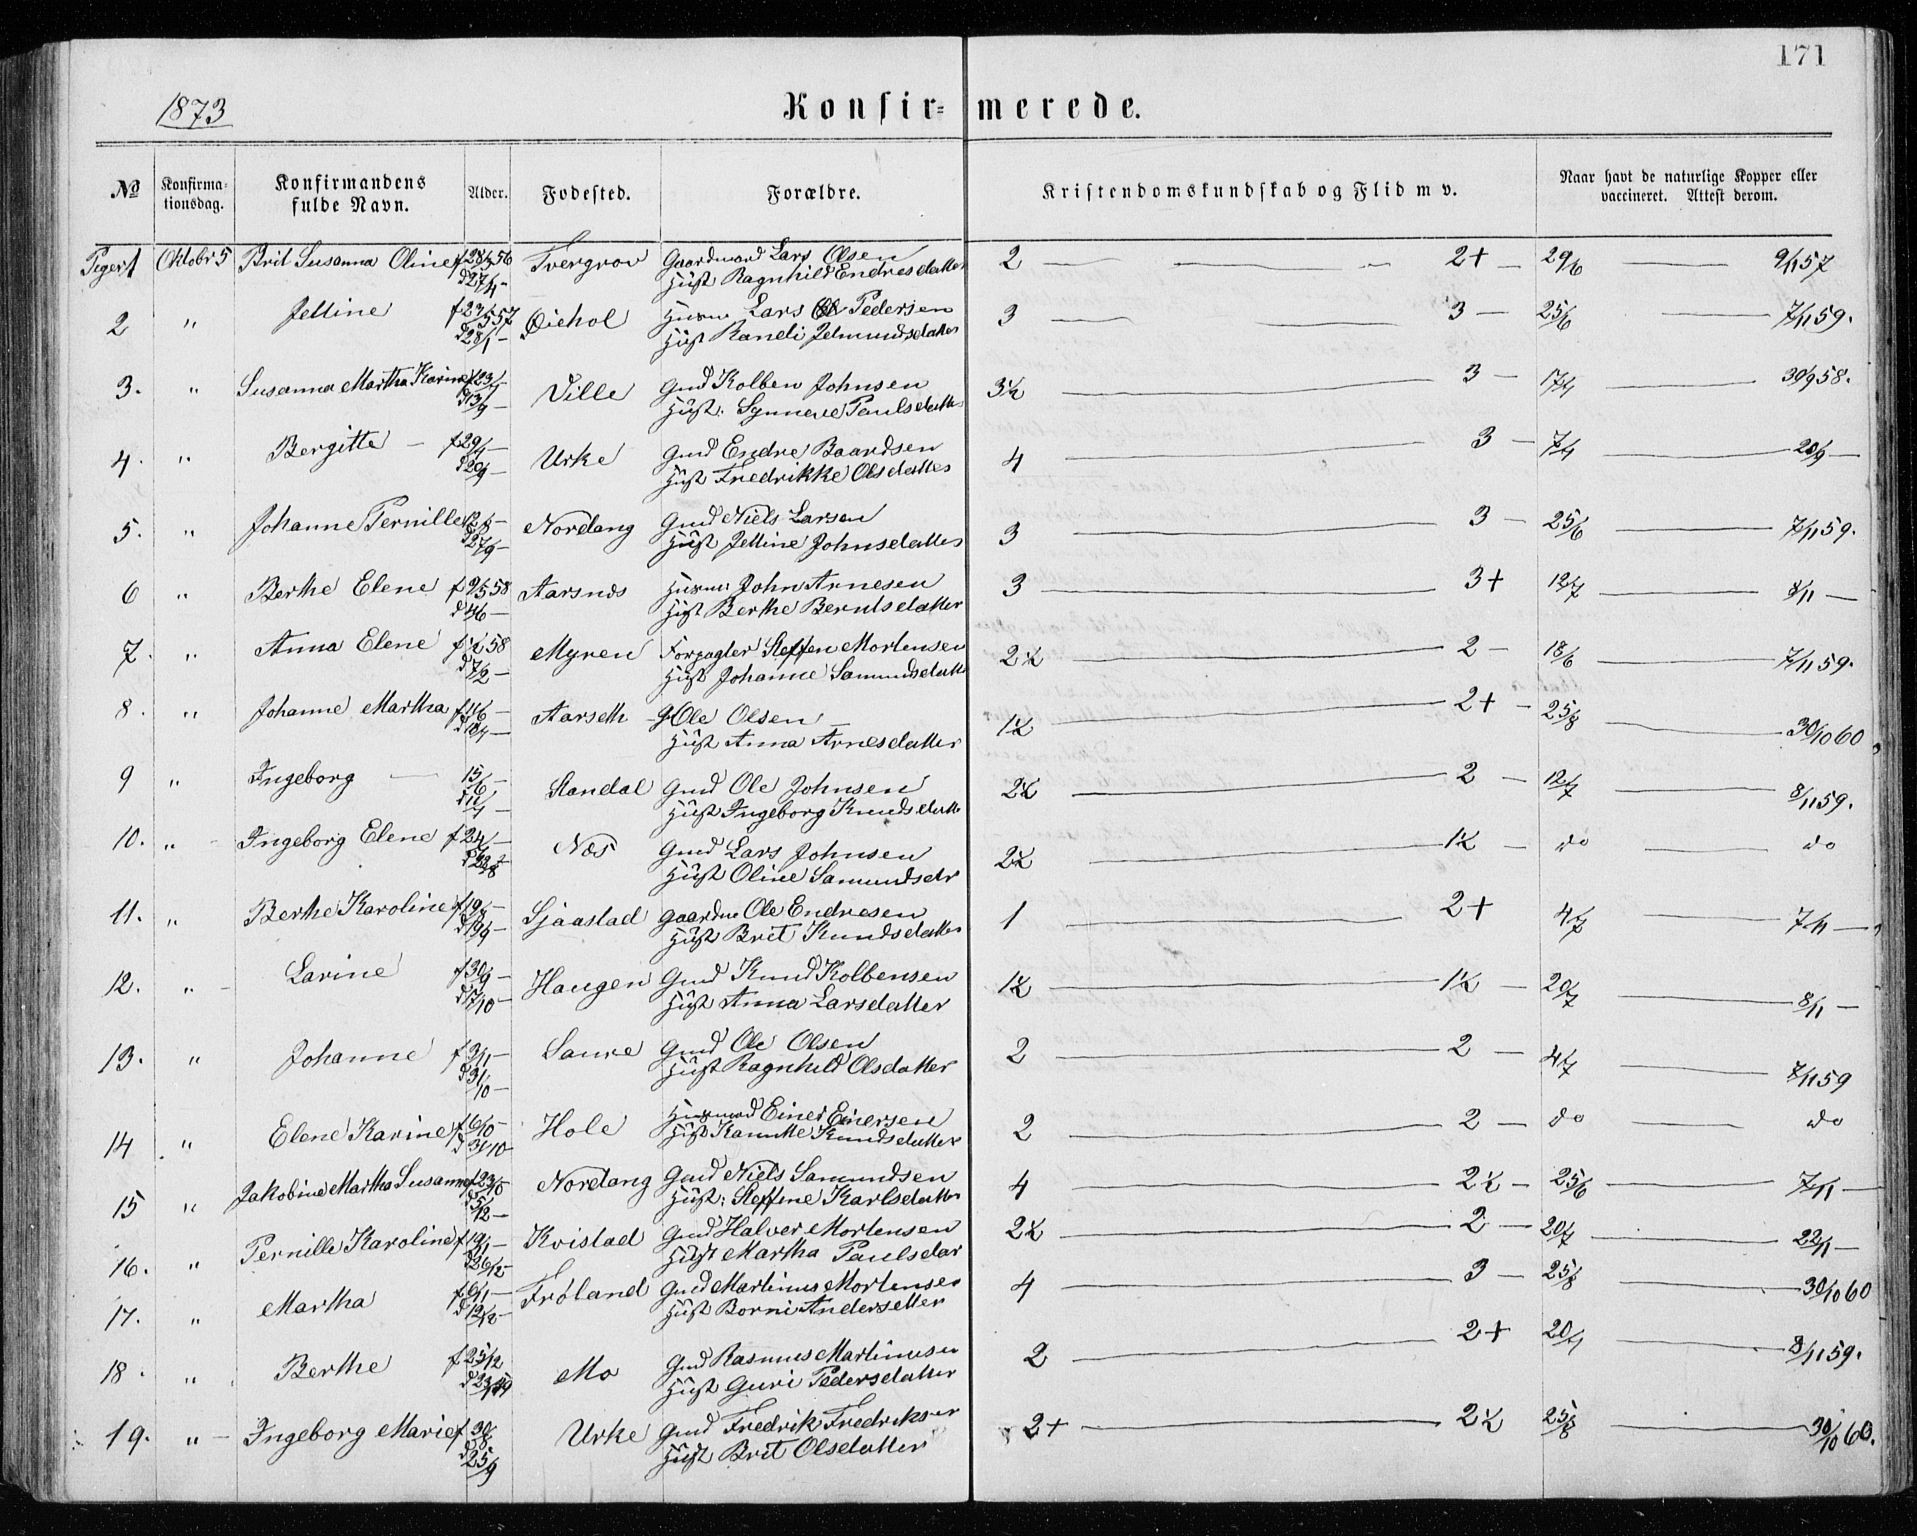 171
1873
Konfir= merede.
No
Konfirma=
tionsdag.
Konfirmandens
fulde Navn.
Alder.
Fodested.
Forældre.
Kristendomskundskab og Flid m v.
Naar havt de naturlige Kopper eller
vaccineret. Attest derom.
Piger 1 Oktobr 5 Brit Susanna Oline Gaardmand Lars Olsen 2 — 2+ — 29/6 — 9/11 57
d 27/4 — Hust Ragnhild Endresdatter
2 " Jettine Øiehol Lars Pedersen 3 — 3 — 25/6 — 7/11 59.
d 28/1 — Hust Randi
3. " Susanna Martha Karine Ville Gmd Kolben Johnsen 3½ — 3 — 17/4 — 30/9 58.
d 13/9 — Hust: Synneve Paulsdatter
4. " Bergitte — f 29/7 — Urke Gmd Endre Baardsen 4 — 3 — 7/4 — 20/9 —
d 20/9 — Hust Fredrikke Olsdatter
5. " Johanne Pernille Nordang Gmd Niels Larsen 3 — 3 — 25/6 — 7/11 59.
d 27/9 — Hust Jettine Johnsdatter
6 " Berthe Elene Aarsnes Husm John Arnesen 3 — 3+ 12/7 — 8/11 —
d 4/6 — Hust Berthe Berntsdatter
7. " Anna Elene Myren Forpagter Steffen Mortensen 2½ — 2 — 18/6 — 7/11 59.
d 7/2 — Hust Johanne Samundsdatter
8. " Johanne Martha Aarseth G Ole Olsen 1½ — 2+ — 25/8 — 30/10 60
Hust Anna Arnesdatter
9 " Ingeborg — 15/6 — Standal Gmd Ole Johnsen 2½ — 2 — 12/7 — 8/11 59.
Hust Ingeborg Knudsdatter
10. " Ingeborg Elene Næs Gmd Lars Johnsen 2½ — 1½ — do — do
Hust Oline Samundsdr
11. " Berthe Karoline Sjaastad Gaardm Ole Endresen 1 — 2+ 4/7 — 7/11 —
Hust Brit Knudsdatter
12. " Larine f 30/9 — Haugen Gmd Knud Kolbensen 1½ — 1½ — 20/7 — 8/11 —
d 17/10 — Hust Anna Larsdatter
13. " Johanne Saure Gmd Ole Olsen 2 — 2 — 4/7 — 7/11 59
d 31/10 — Hust Ragnhild Olsdatter
14 " Elene Karine f 6/10 — Hole Husmand Einer Einersen 2 — 2 — do — do
d 31/10 — Hust Knudsdatter
15 " Jakobine Martha Susanne Nordang Gmd Niels Samundsen 4 — 2½ — 25/6 — 7/11 —
d 5/12 — Hust: Steffine Karlsdatter
16. " Pernille Karoline Kvistad Gmd Halver Mortensen 2½ — 2 — 20/7 — 22/11 —
d 26/12 — Hust Martha Paulsdar
17. " Martha f 6/11 — Frøland Gmd Martinus Mortensen 4 — 3 — 25/8 — 30/10 60
Hust Borni Andersdatter
18. " Berthe f 25/12 Mo Gmd Rasmus Martinusen 2 — 2+ 20/7 — 8/11 59.
Hust Guri Pedersdatter
19. " Ingeborg Marie f 30/8 Urke Gmd Fredrik Fredriksen 2+ — 2½ 25/8 — 30/10 60.
d 25/9 Hust Brit Olsdatter